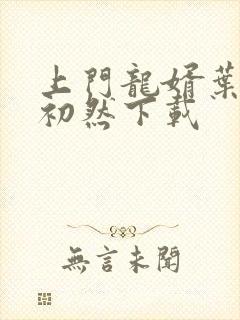 上門龍婿葉
初然下載
無言未聞